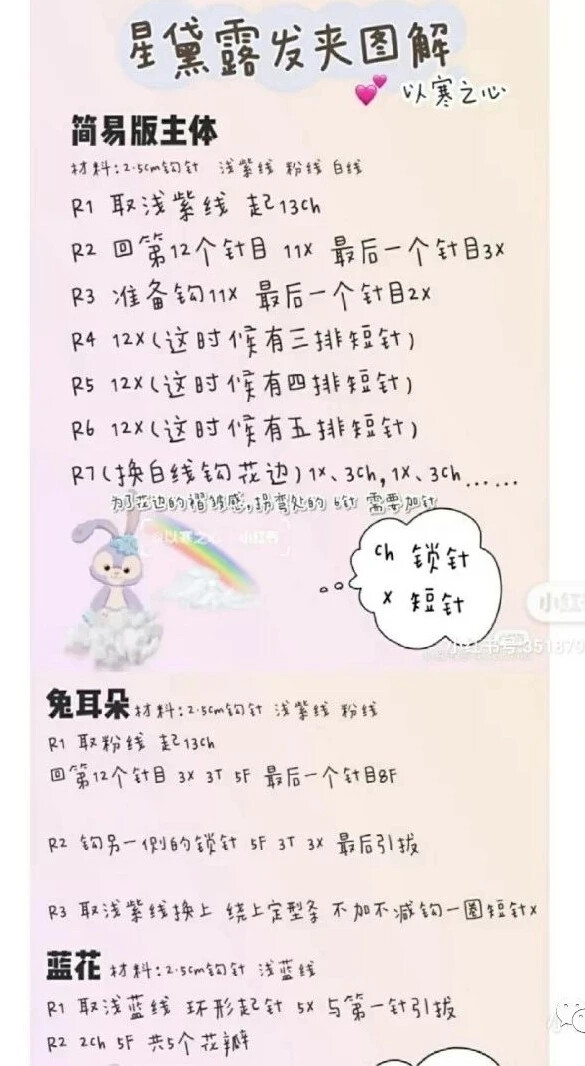 星黛露发夹图解
以寒之心
简易版主体
材料:2.5cm钩针 浅紫线 粉线 白线
R1 取浅紫线 起13ch
R2 回第12个针目 11X 最后一个针目3X
R3 准备钩11X 最后一个针目2X
R4 12X(这时候有三排短针)
R5 12X(这时候有四排短针)
R6 12X(这时候有五排短针)
R7(换白线钩花边)1X、3ch,1X、3ch......
为了花边的褶皱感,拐弯处的 6针 需要加针
以寒之心 小红书
ch 锁针
X 短针
小红
小红书号:351879
兔耳朵 材料:2.5cm钩针 浅紫线 粉线
R1 取粉线 起13ch
回第12个针目 3X 3T 5F 最后一个针目8F
R2 钩另一侧的锁针 5F 3T 3X 最后引拔
R3 取浅紫线换上 绕上定型条 不加不减钩一圈短针X
蓝花 材料:2.5cm钩针 浅蓝线
R1 取浅蓝线 环形起针 5X 与第一针引拔
R2 2ch 5F 共5个花瓣